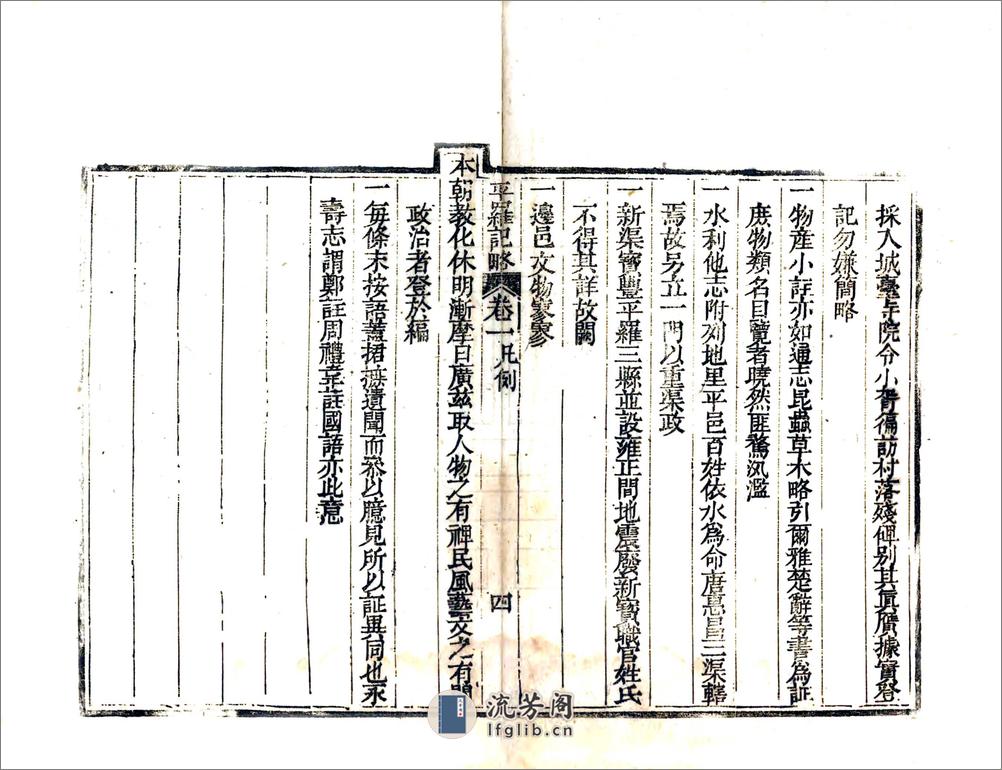 採入城臺寺院令小胥徧訪村落殘碑別其眞贋據實登
記勿嫌簡略
一物産小註亦如通志昆蟲草木略引爾雅楚辭等書爲証
庶物類名目覽者曉然匪騖汎濫
一水利他志附列地里平邑百姓依水爲命唐惠昌三渠轄
焉故另立一門以重渠政
一新渠寶豐平羅三縣並設雍正間地震廢新寶職官姓氏
不得其詳故闕
一邊邑文物寥寥
平羅記略 卷一 凡例 四
本朝敎化休明漸摩日廣兹取人物之有裨民風藝文之有關
政治者登於編
一每條末按語蓋捃摭遺聞而叅以臆見所以証異同也永
壽志謂鄭註周禮韋註國語亦此意
流芳阁
lfglib.cn